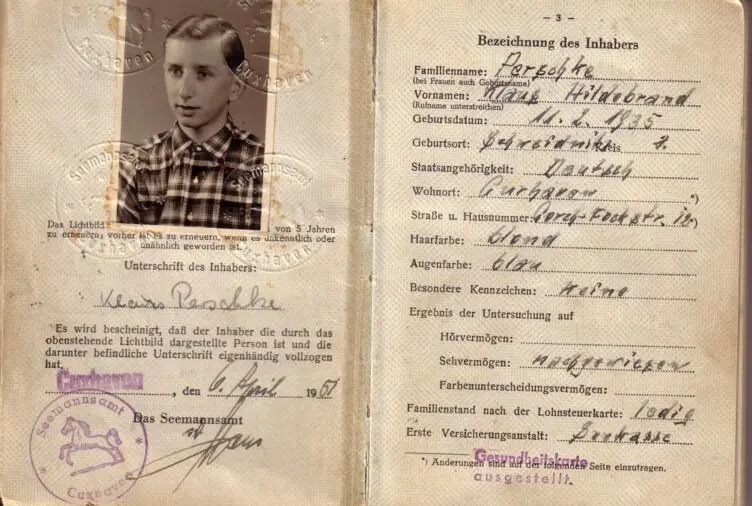 Seemannsamt
Cuxhaven
Das Lichtbild von 5 Jahren
zu erneuern, vorher ist es zu erneuern, wenn es unkenntlich oder
unähnlich geworden ist.
Unterschrift des Inhabers:
Klaus Perschke
Es wird bescheinigt, daß der Inhaber die durch das
obenstehende Lichtbild dargestellte Person ist und die
darunter befindliche Unterschrift eigenhändig vollzogen
hat.
Cuxhaven, den 6. April 1951
Das Seemannsamt
Seemannsamt
Cuxhaven
- 3 -
Bezeichnung des Inhabers
Familienname: Perschke
(bei Frauen auch Geburtsname)
Vornamen: Klaus Hildebrand
(Rufname unterstreichen)
Geburtsdatum: 11. 2. 1935
Geburtsort: Kreis
Staatsangehörigkeit: Deutsch
Wohnort: Cuxhaven *)
Straße u. Hausnummer: Gorch-Fock-Str. *)
Haarfarbe: blond
Augenfarbe: blau
Besondere Kennzeichen: keine
Ergebnis der Untersuchung auf
Hörvermögen:
Sehvermögen: nachgewiesen
Farbenunterscheidungsvermögen:
Familienstand nach der Lohnsteuerkarte: ledig
Erste Versicherungsanstalt: Seekasse
*) Änderungen sind auf der folgenden Seite einzutragen.
Gesundheitskarte
ausgestellt.